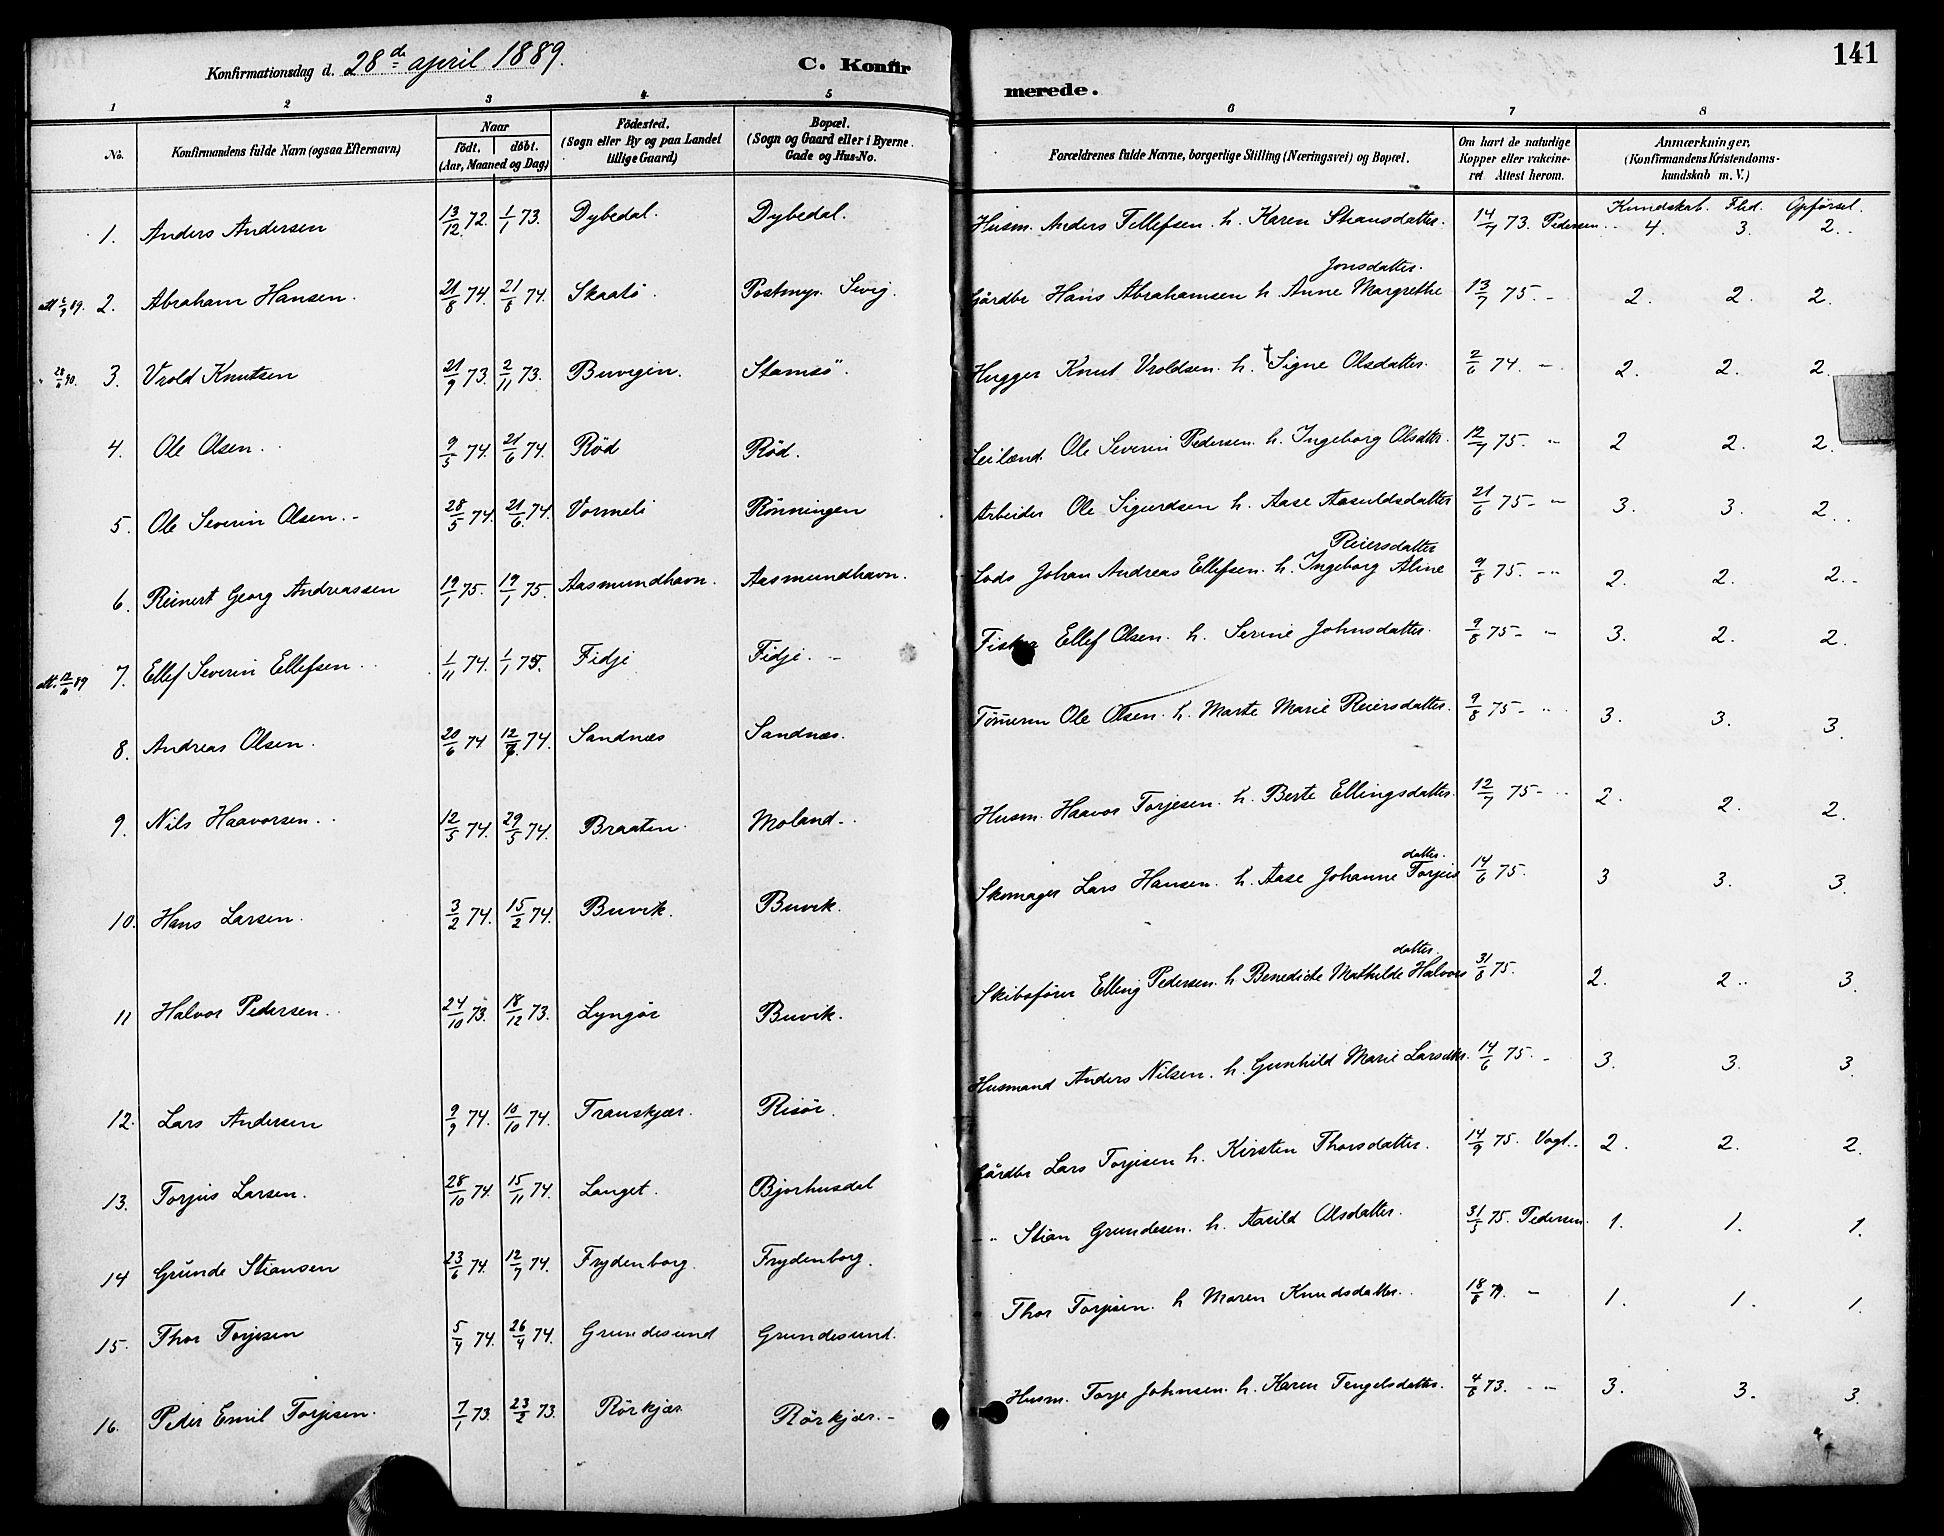 Konfirmationsdag d. 28de april 1889. C. Konfirmerede. 141
1 2 3 4 5 6 7 8
No. Konfirmandens fulde Navn (ogsaa Efternavn) Naar født. døbt. (Aar, Maaned og Dag) Födested. (Sogn eller By og paa Landet tillige Gaard) Bopæl. (Sogn og Gaard eller i Byerne. Gade og Hus-No. Forældrenes fulde Navne, borgerlige Stilling (Næringsvei) og Bopæl. Om havt de naturlige Kopper eller vakcineret Attest herom. Anmærkninger, (Konfirmandens Kristendomskundskab m. V.)
Kundskab. Flid. Opførsel.
1. Anders Andersen 13/12 72. 1/1 73. Dybedal. Dybedal. Husm. Anders Tellefsen. h. Karen Stiansdatter. 14/7 73. Pedersen 4. 3. 2.
2. Abraham Hansen. 21/8 74. 21/8 74. Skaatö. Postmyr. Sevig. Gårdbr Hans Abrahamsen h. Anne Margrethe Jonsdatter. 13/7 75. 2. 2. 2.
28/6 90. 3. Vrold Knutsen 21/9 73. 2/11 73. Buvigen. Stamsö. Hugger Knut Vroldsen. h. †Signe Olsdatter. 2/6 74. 2. 2. 2.
4. Ole Olsen. 9/5 74. 21/6 74. Rød Rød. Leilænd. Ole Severin Pedersen. h. Ingeborg Olsdtter. 12/7 75. " 2 2. 2.
5. Ole Severin Olsen. 28/5 74. 21/6 74. Vormeli Rönningen Arbeider Ole Sigurdsen h. Aase Aasuldsdatter 21/6 75. 3. 3. 2.
6. Reinert Georg Andreassen 19/1 75. 19/1 75. Aasmundhavn. Aasmundhavn. Lods Johan Andreas Ellefsen. h. Ingeborg Aline Reiersdatter 9/8 75. 2. 2. 2.
7. Ellef Severin Ellefsen 1/11 74. 1/1 75. Fidje Fidje. Fisker Ellef Olsen. h. Serine Johnsdatter. 9/8 75. 3. 2. 2.
8. Andreas Olsen. 20/6 74 74. Sandnæs Sandnæs. Tömmerm Ole Olsen. h. Marte Marie Reiersdatter. 9/8 75. 3. 3. 3.
9. Nils Haavorsen. 12/5 74. 29/5 74. Braaten. Moland. Husm. Haavor Torjesen. h. Berte Ellingsdatter. 12/7 75. 2. 2. 2.
10. Hans Larsen. 3/2 74. 15/2 74. Buvik. Buvik. Skomager Lars Hansen. h. Aase Johanne Torjusdatter. 14/6 75. 3 3. 3.
11 Halvor Pedersen. 24/10 73. 18/12 73. Lyngör Buvik. Skibsfører Elling Pedersen. h. Benedicte Mathilde Halvorsdatter. 31/8 75. 2. 2. 3.
12. Lars Andersen 9/9 74. 10/10 74. Transkjær. Risör. Husmand Anders Nilsen. h. Gunhild Marie Larsdtter. 14/6 75. 3. 3. 3.
13. Torjus Larsen. 28/10 74. 15/11 74. Langet. Bjorhusdal Gårdbr Lars Torjesen h. Kirsten Thorsdatter. 14/9 75. Vogt. 2. 2. 2.
14 Grunde Stiansen 23/6 74. 12/7 74. Frydenborg. Frydenborg. " Stian Grundesen. h. Aasild Olsdatter. 31/5 75. Pedersen. 1. 1. 1.
15. Thor Torjesen 5/4 74. 26/4 74. Grundesund Grundesund. Thor Torjesen. h Maren Knudsdatter. 18/8 1. 1. 1.
16. Peder Emil Torjesen. 7/1 73. 23/2 73. Rörkjær. Rörkjær. Husm. Torje Johnsen. h. Karen Tengelsdatter. 4/8 73. 3. 3. 3.